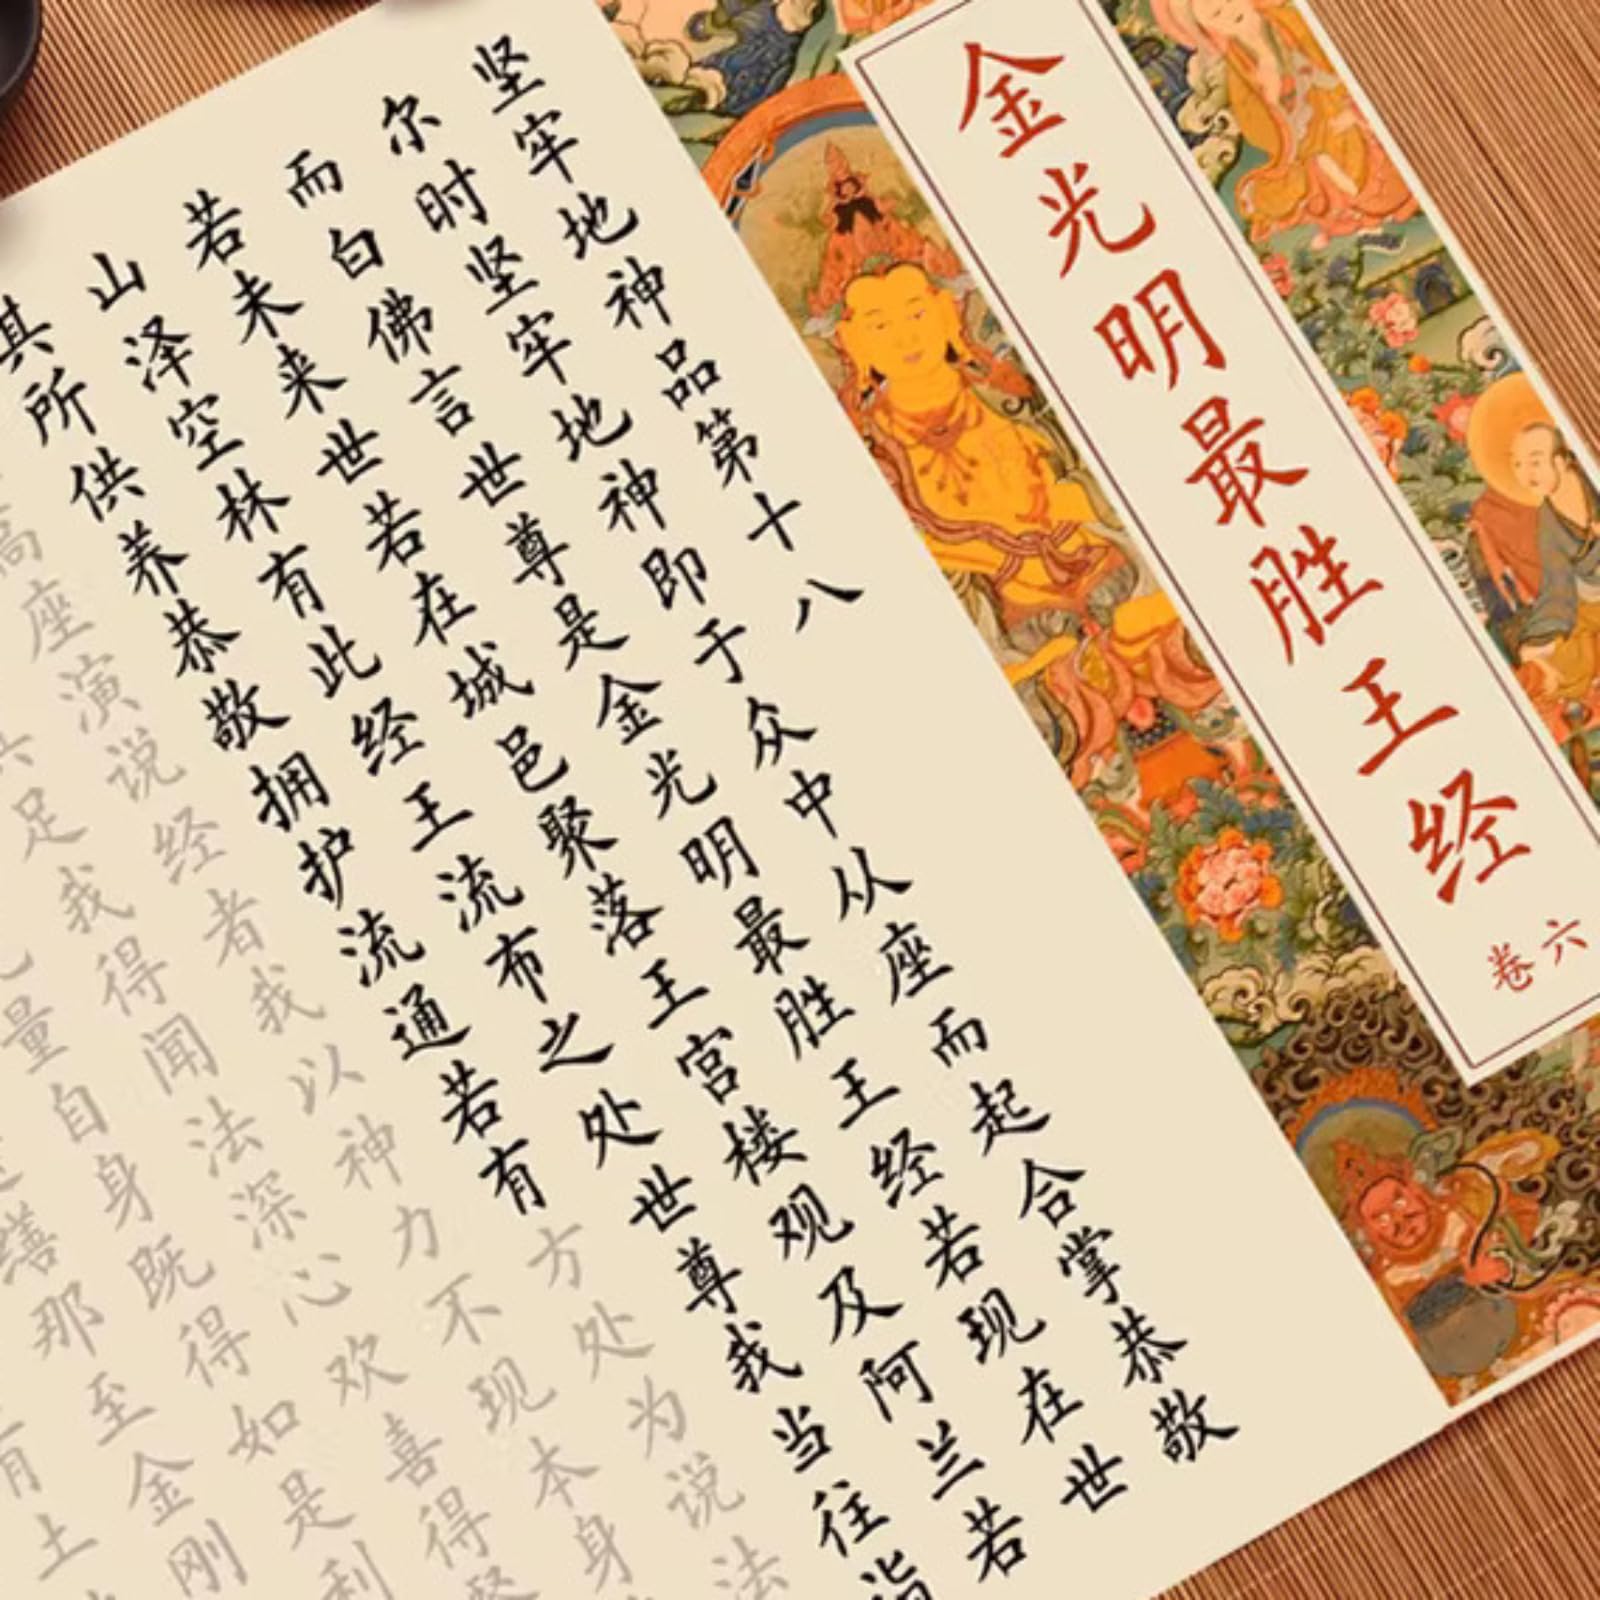 金光明最胜王经
卷六
坚牢地神品第十八
尔时坚牢地神即于众中从座而起合掌恭敬
而白佛言世尊是金光明最胜王经若现在世
若未来世若在城邑聚落王宫楼观及阿兰若
山泽空林有此经王流布之处世尊我当往诣
其所供养恭敬拥护流通若有方处为说法
高座演说经者我以神力不现本身
足我得闻法深心欢喜得
量自身既得如是利
缮那至金刚
土